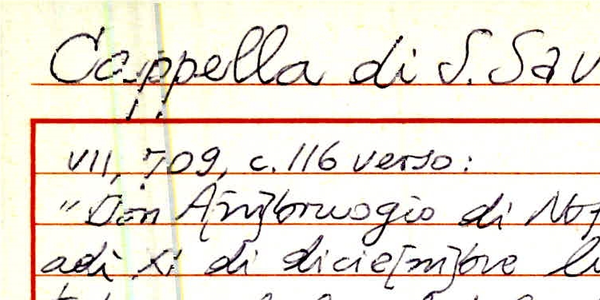 Cappella di S. Sav
VII, 709, c. 116 verso:
"Don A[m]bruogio di Nof
adì XI di dicie[m]bre li